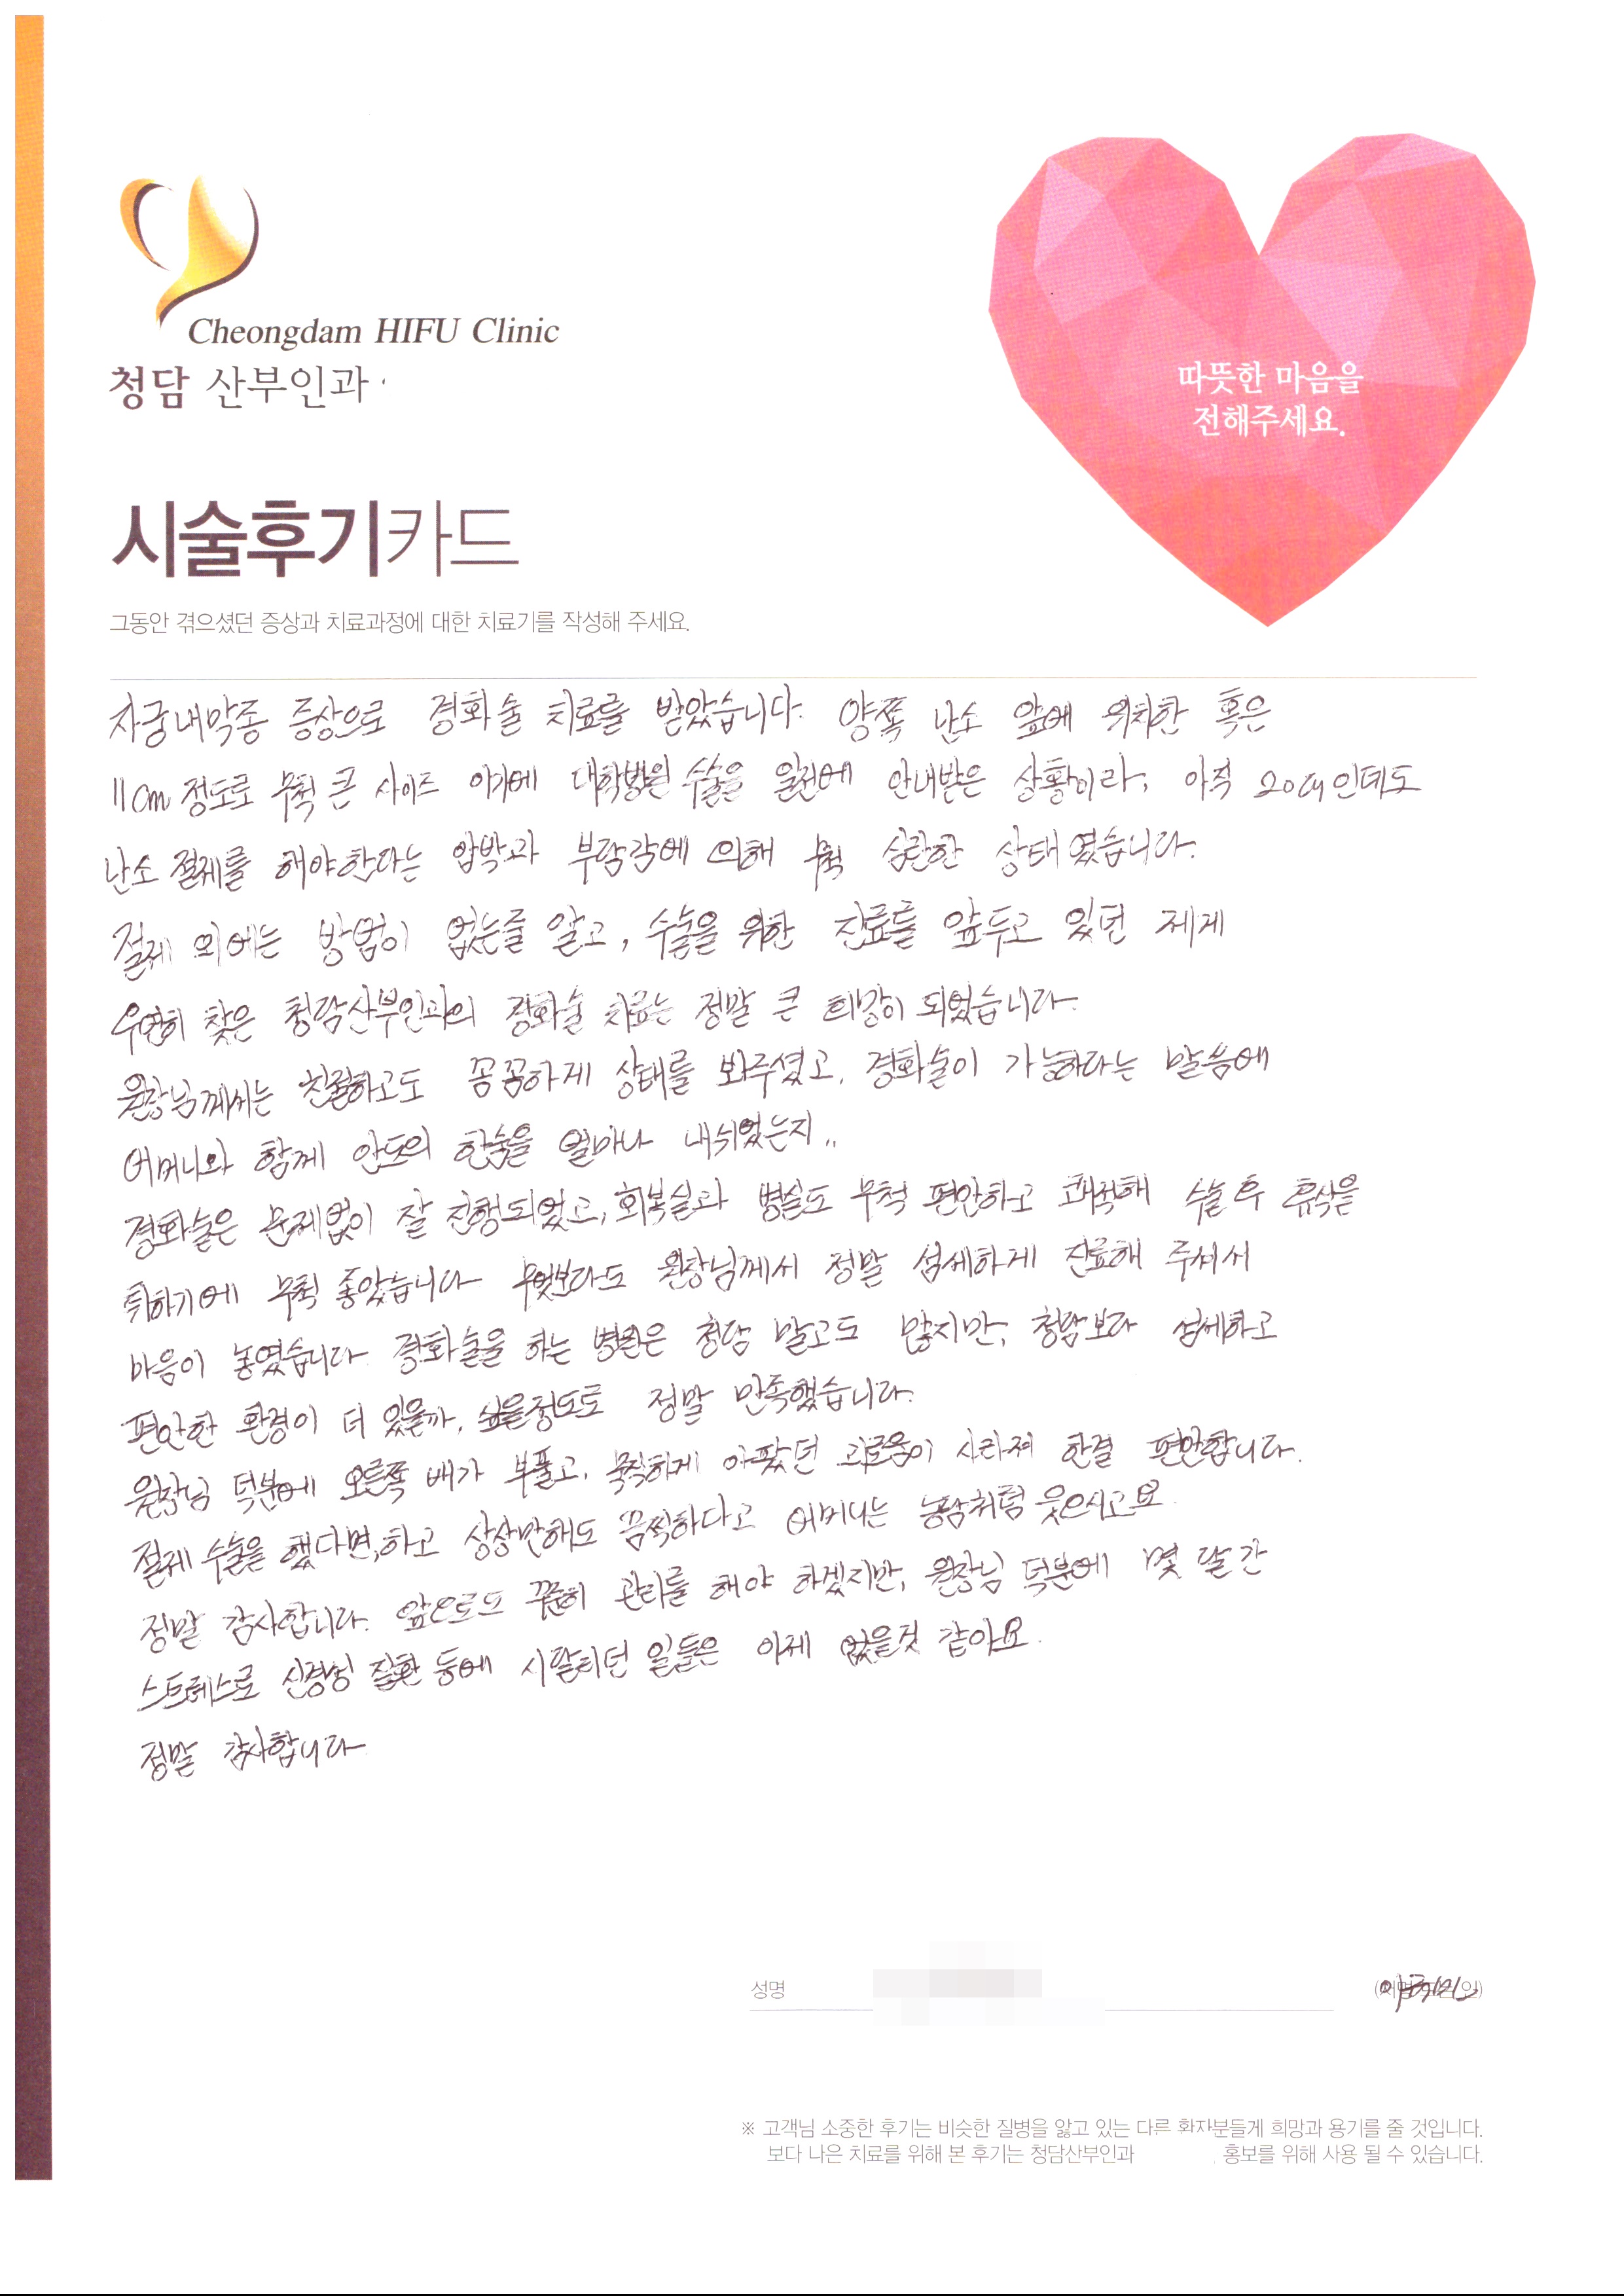 Cheongdam HIFU Clinic
청담 산부인과
따뜻한 마음을
전해주세요.
시술후기카드
그동안 겪으셨던 증상과 치료과정에 대한 치료기를 작성해 주세요.
자궁내막종 증상으로 경화술 치료를 받았습니다. 양쪽 난소 앞에 위치한 혹은
11cm 정도로 무척 큰 사이즈 이기에 대학병원 수술을 일전에 안내받은 상황이라, 아직 20대인데도
난소 절제를 해야한다는 압박과 부담감에 의해 무척 심란한 상태였습니다.
절제 외에는 방법이 없는줄 알고, 수술을 위한 진료를 앞두고 있던 제게
우연히 찾은 청담산부인과의 경화술 치료는 정말 큰 희망이 되었습니다.
원장님께서는 친절하고도 꼼꼼하게 상태를 봐주셨고, 경화술이 가능하다는 말씀에
어머니와 함께 안도의 한숨을 얼마나 내쉬었는지..
경화술은 문제없이 잘 진행되었고, 회복실과 병실도 무척 편안하고 쾌적해 수술 후 휴식을
취하기에 무척 좋았습니다 무엇보다도 원장님께서 정말 섬세하게 진료해 주셔서
마음이 놓였습니다. 경화술을 하는 병원은 청담 말고도 많지만, 청담보다 섬세하고
편안한 환경이 더 있을까, 싶을정도로 정말 만족했습니다.
원장님 덕분에 오른쪽 배가 부풀고, 묵직하게 아팠던 괴로움이 사라져 한결 편안합니다.
절제 수술을 했다면,하고 상상만해도 끔찍하다고 어머니는 농담처럼 웃으시고요.
정말 감사합니다. 앞으로도 꾸준히 관리를 해야 하겠지만, 원장님 덕분에 몇 달간
스트레스로 신경성 질환 등에 시달리던 일들은 이제 없을것 같아요.
정말 감사합니다
성명
※ 고객님 소중한 후기는 비슷한 질병을 앓고 있는 다른 환자분들게 희망과 용기를 줄 것입니다.
보다 나은 치료를 위해 본 후기는 청담산부인과 홍보를 위해 사용 될 수 있습니다.